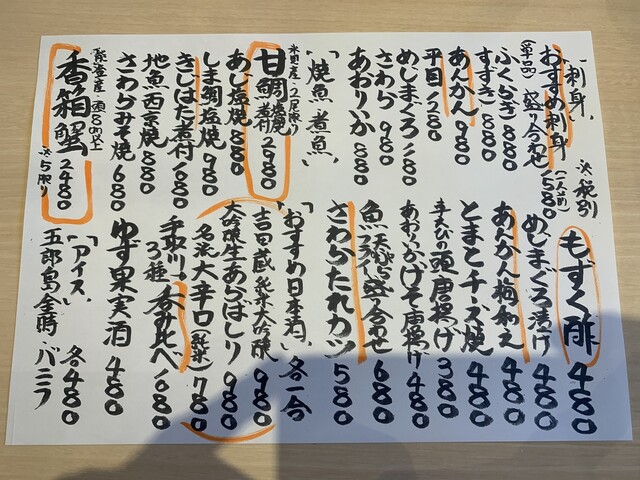 「刺身」
※税別
おすすめ刺身
盛り合わせ(二人前)1580
(単品)
ふくらぎ 880
すずき 880
あんかん 980
平目 1280
めじまぐろ 1180
さわら 980
あおりいか 880
「焼魚、煮魚」
米国産・2尾限り
甘鯛 塩焼 煮付 2980
あじ塩焼 880
しま鯛塩焼 980
きじはた煮付 1680
地魚西京焼 880
さわらみそ焼 680
香箱蟹 2480
※5限り
もずく酢 480
めじまぐろ漬け 480
あんかん梅和え 480
とまとチーズ焼 480
辛えびの頭唐揚げ 380
あおりいかげそ唐揚げ 480
魚天ぷら盛合わせ 680
さわらたれカツ 580
「おすすめ日本酒」各一合
吉田蔵 純米大吟醸 980
大吟醸生あらばしり 980
名流 大辛口(純米) 780
手取川 3種 呑み比べ 1680
ゆず果実酒 480
「アイス」各480
五郎島金時・バニラ